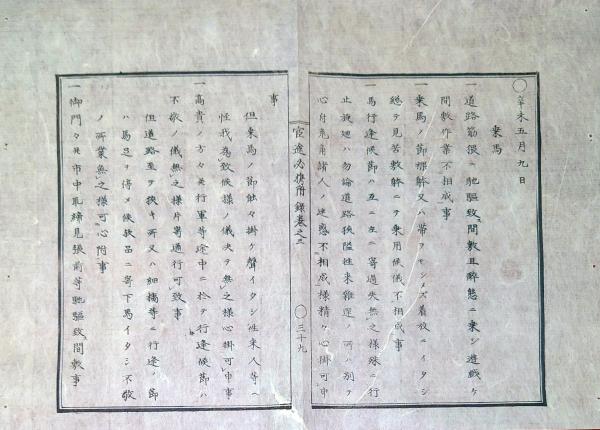 〇辛未五月九日
乗馬
一道路筋猥ニ馳驅致間敷且酔態ニ乗シ遊戯ケ
間敷作業不相成事
一乗馬ノ節裸躰又ハ帯ヲセシメズ着放ニイタシ
総テ見苦敷躰ニテ乗用候儀不相成事
一馬行逢候節ハ互ニ左ニ寄過失無之様殊ニ行
止旋廻ハ勿論道路狭隘往来雑遝ノ所ハ別テ
心付老角諸人ノ迷惑不相成様精々心掛可申
事
宦途必携附録巻之三
〇三十九
但乗馬ノ節能々掛ケ聲イタシ往来人等ヘ
怪我為致候様ノ儀决テ無之様心掛可申事
一高貴ノ方々并行軍等途中ニ於テ行逢候節ハ
不敬ノ儀無之様片寄通行可致事
但道路至テ狭キ所又ハ細橋等ニ行逢ノ節
ハ馬足ヲ停メ候歟品ニ寄下馬イタシ不敬
ノ所業無之様可心附事
一御門々并市中取締見張前等馳驅致間敷事